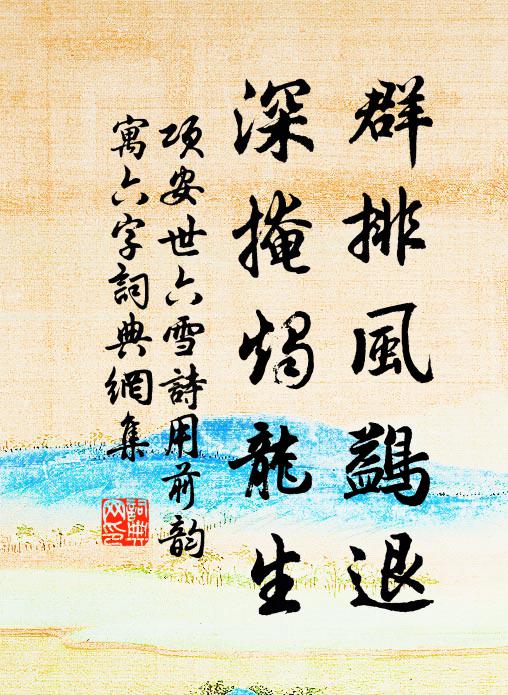 群排風鷁退
深掩燭龍生
項安世六雪詩用前韵
寓六字詞典網集
詞典網印